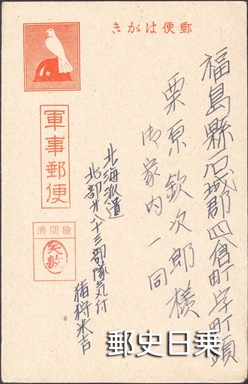 郵便はがき
福島縣石城郡四倉町字町頭
栗原欽次郎様
御家内一同
軍事郵便
検閲済
北海派遣
北部第八十三部隊気付
猪狩米吉
郵史日乗